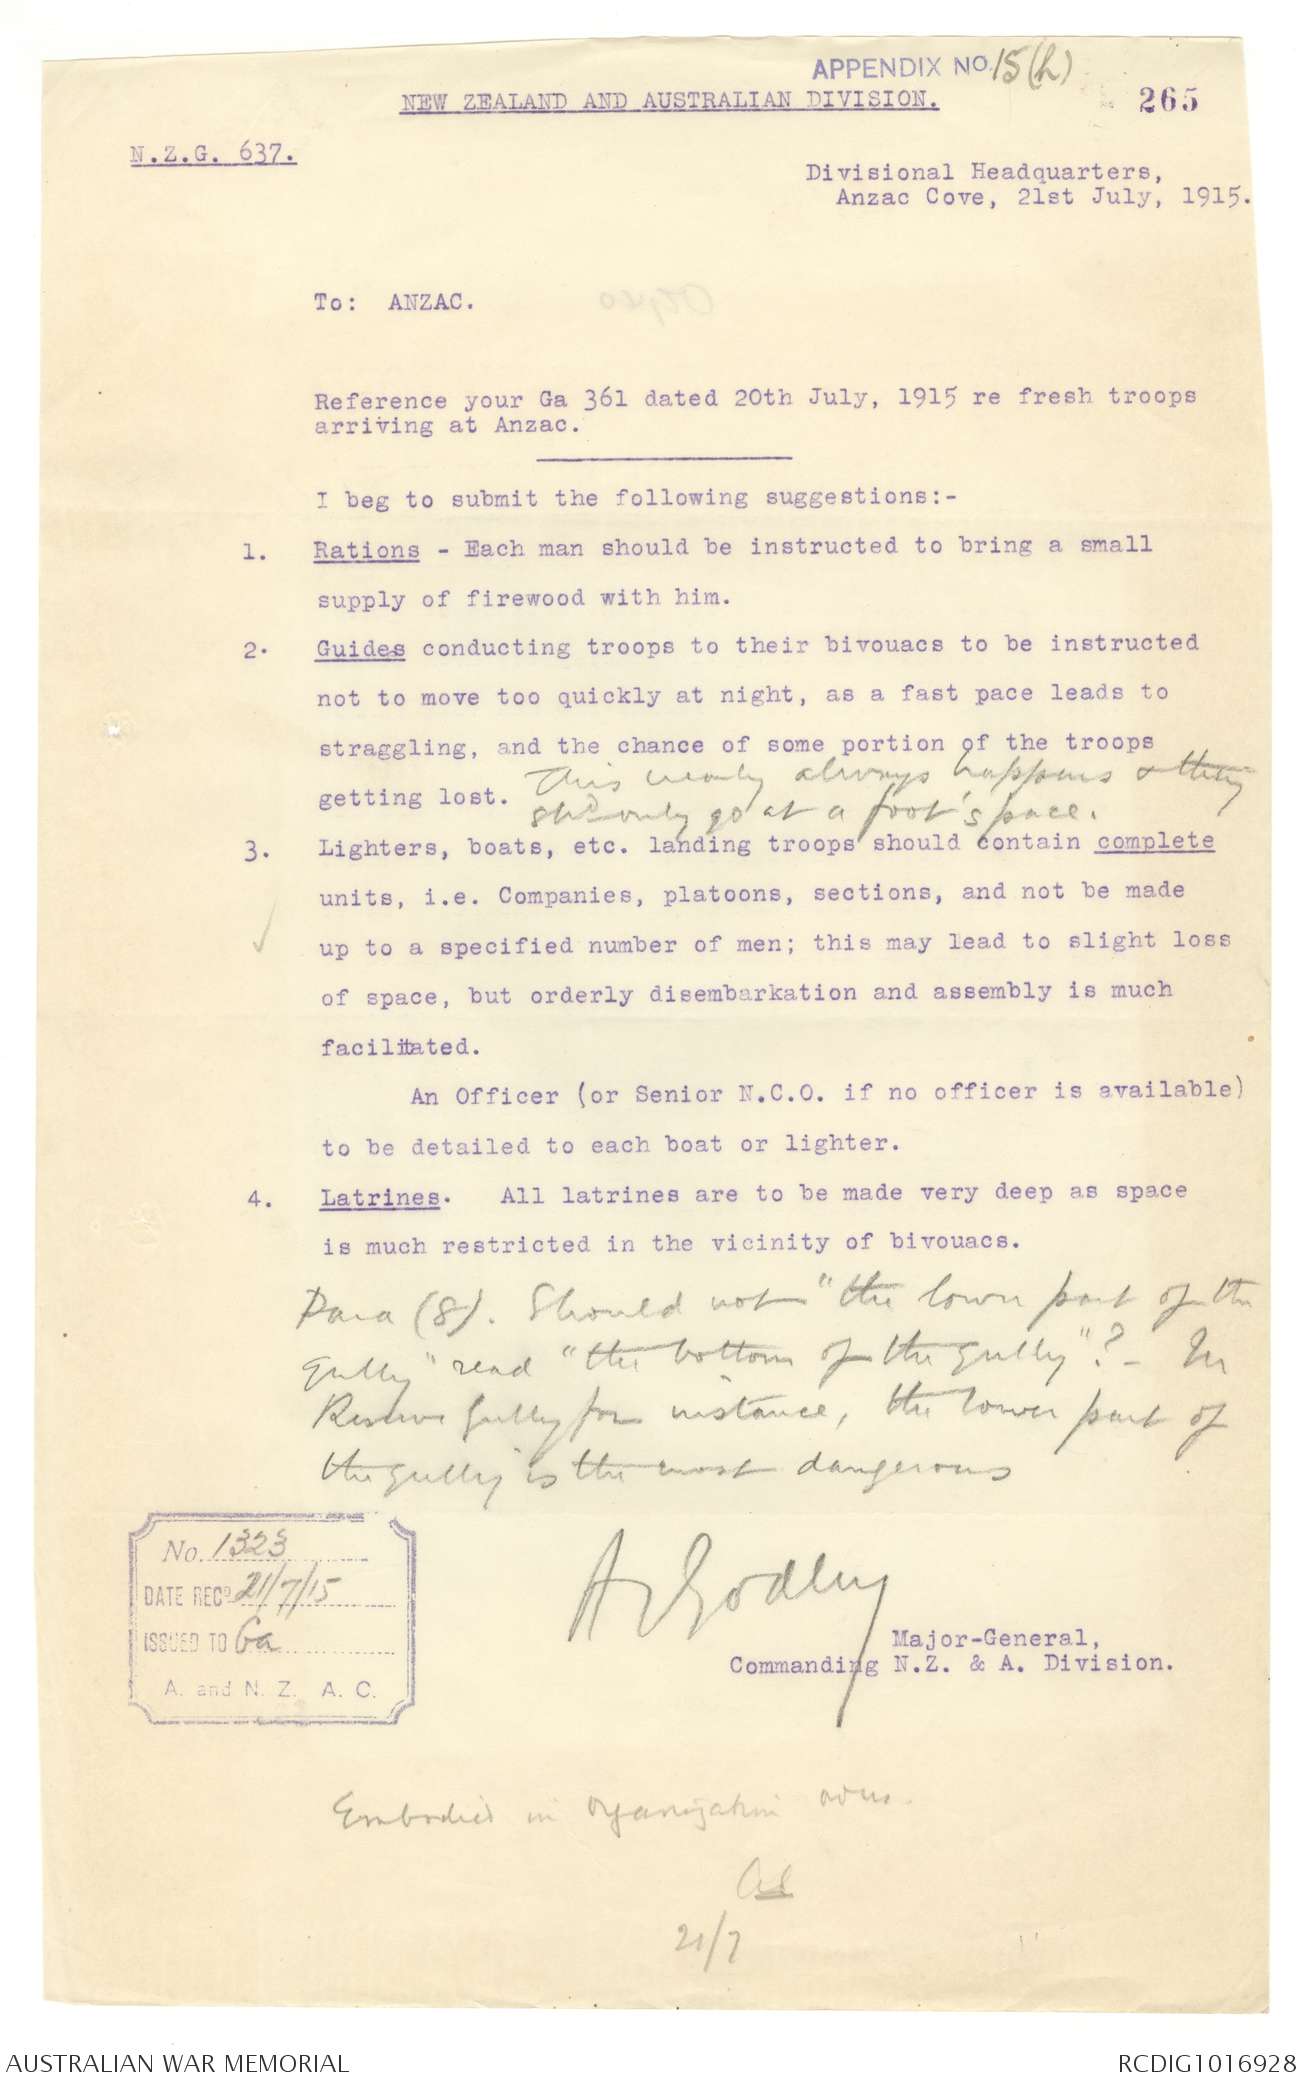 APPENDIX NO. 15(h)
NEW ZEALAND AND AUSTRALIAN DIVISION.
265
N.Z.G. 637.
Divisional Headquarters,
Anzac Cove, 21st July, 1915.
To: ANZAC.
Reference your Ga 361 dated 20th July, 1915 re fresh troops
arriving at Anzac.
I beg to submit the following suggestions:-
1. Rations - Each man should be instructed to bring a small
supply of firewood with him.
2. Guides conducting troops to their bivouacs to be instructed
not to move too quickly at night, as a fast pace leads to
straggling, and the chance of some portion of the troops
getting lost. This nearly always happens & they
shd only go at a foot's pace.
3. Lighters, boats, etc. landing troops should contain complete
units, i.e. Companies, platoons, sections, and not be made
up to a specified number of men; this may lead to slight loss
of space, but orderly disembarkation and assembly is much
facilitated.
An Officer (or Senior N.C.O. if no officer is available)
to be detailed to each boat or lighter.
4. Latrines. All latrines are to be made very deep as space
is much restricted in the vicinity of bivouacs.
Para (8). Should not "the lower part of the
gully" read "the bottom of the gully"? - In
Reserve Gully for instance, the lower part of
the gully is the most dangerous
No. 1323
DATE RECD 21/7/15
ISSUED TO Ga
A. and N. Z. A. C.
A Godley
Major-General,
Commanding N.Z. & A. Division.
Embodied in organization
21/7
AUSTRALIAN WAR MEMORIAL
RCDIG1016928